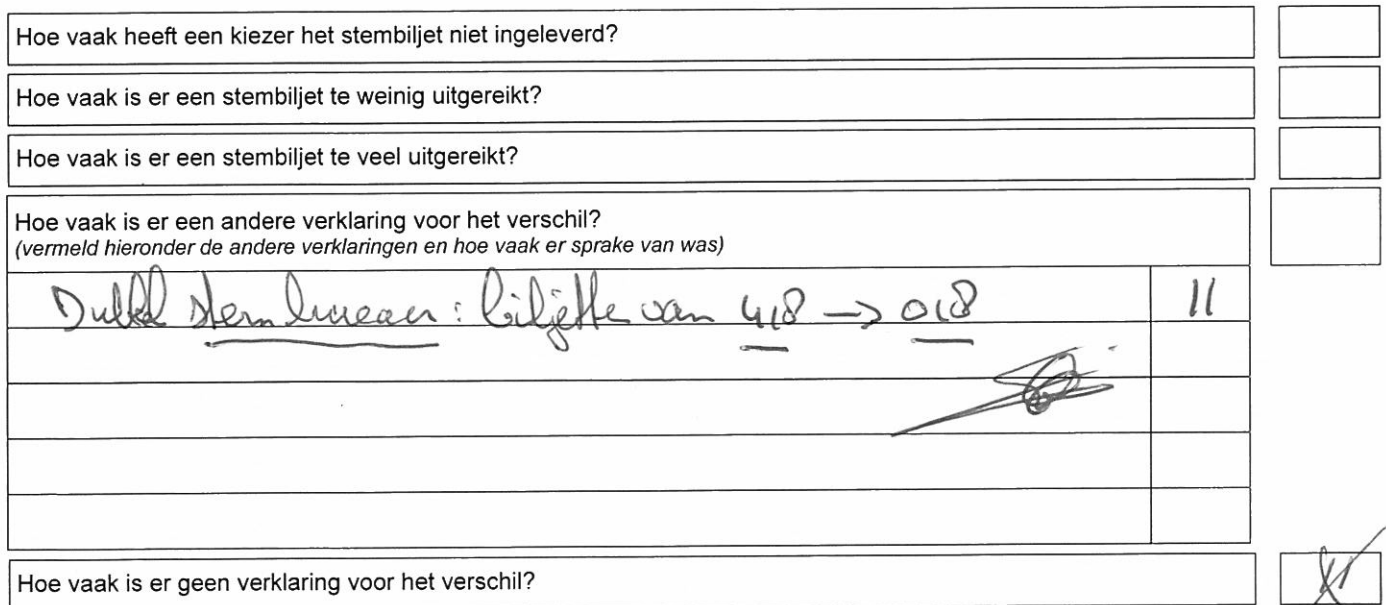 Hoe vaak heeft een kiezer het stembiljet niet ingeleverd?
Hoe vaak is er een stembiljet te weinig uitgereikt?
Hoe vaak is er een stembiljet te veel uitgereikt?
Hoe vaak is er een andere verklaring voor het verschil?
(vermeld hieronder de andere verklaringen en hoe vaak er sprake van was)
stembureau: biljette van 418 -> 018 11
Hoe vaak is er geen verklaring voor het verschil?